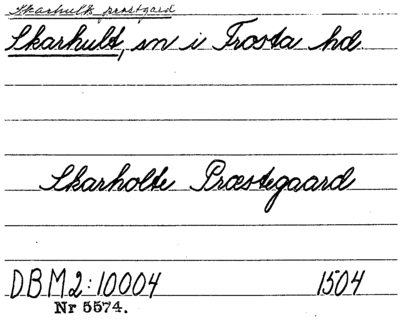 Skarhults prästgård
Skarhult, sn i Frosta hd
Skarholte Præstegaard
DBM2:10004 1504
Nr 5574.